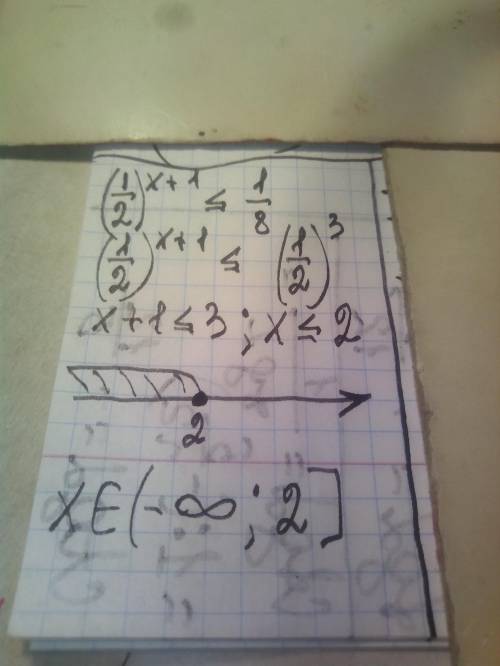 (1/2)^x+1 ≤ 1/8
(1/2)^x+1 ≤ (1/2)^3
x+1≤3; x≤2
2
x∈(-∞; 2]